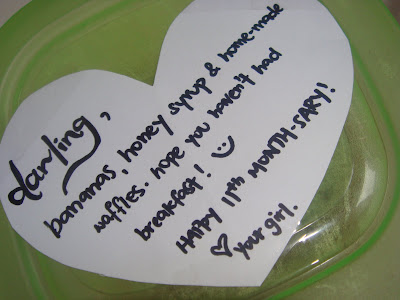 darling,
bananas, honey syrup & home-made
waffles. hope you haven't had
breakfast! :)
HAPPY 11th MONTH-SARY!
♡ your girl.